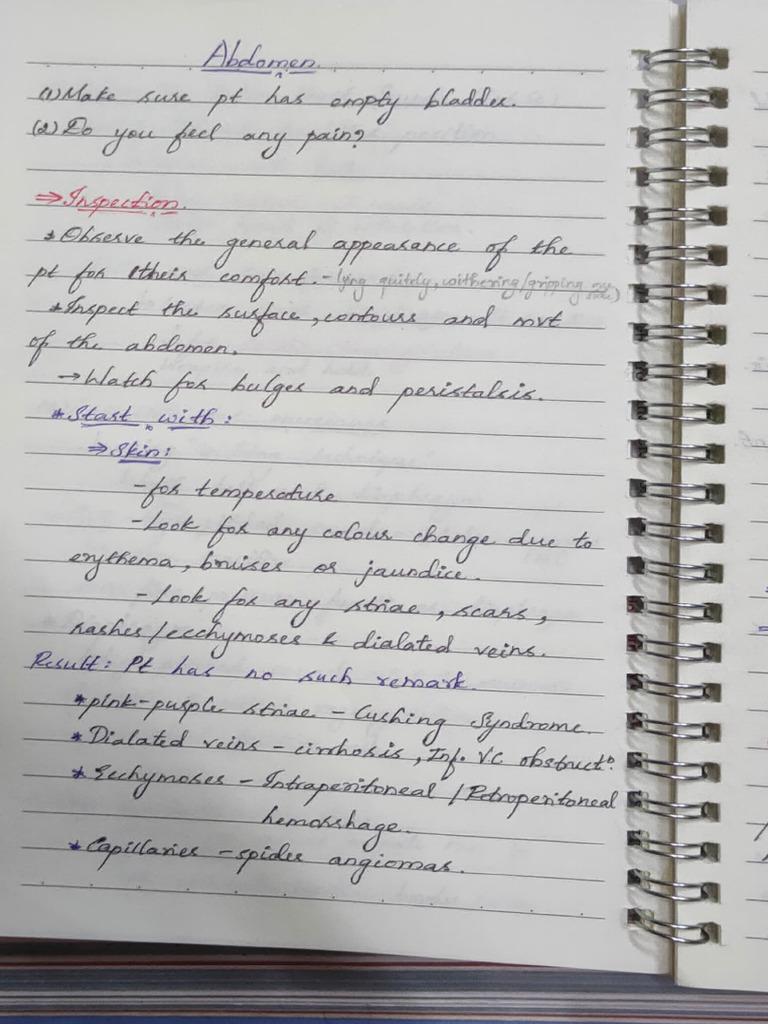 Abdomen.
(1) Make sure pt has empty bladder.
(2) Do you feel any pain?
⇒ Inspection.
* Observe the general appearance of the
pt for their comfort. - lying quitely, writhering/gripping one side)
* Inspect the surface, contours and mvt
of the abdomen.
→ Watch for bulges and peristalsis.
* Start with:
⇒ Skin:
- for temperature
- Look for any colour change due to
erythema, bruises or jaundice.
- Look for any striae, scars,
rashes/ecchymoses & dialated veins.
Result: Pt has no such remark.
* pink-purple striae - Cushing Syndrome.
* Dialated veins - cirrhosis, Inf. V.C obstructⁿ.
* Ecchymoses - Intraperitoneal / Retroperitoneal
hemorrhage.
* Capillaries - spider angiomas.